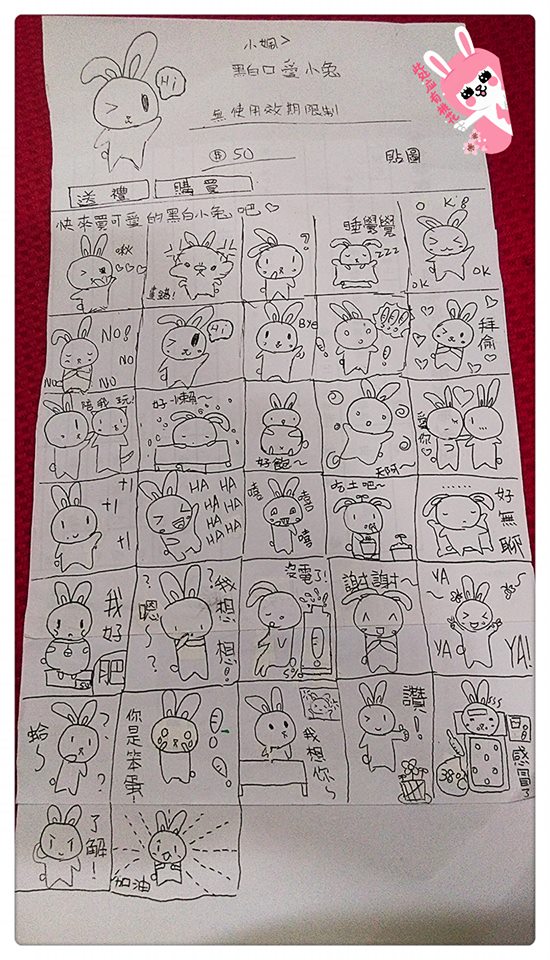 小姵>
Hi
黑白口愛小兔
無使用效期限制
50
貼圖
送禮
購買
快來買可愛的黑白小兔吧♡
啾
睡覺覺
zzz
OK
OK
OK
NO!
NO
NO
NO
Hi
BYE
拜偷
陪我玩!
好懶~
好飽~
天阿~
愛你
+1
+1
+1
HA HA
HA HA
HA HA
HA HA
嘻
嘻
嘻
吃土吧~
......
好無聊
我好肥
嗯~
???
我想想!
沒電了!
5%
謝謝~
YA
YA
YA!
蛤~
???
你是笨蛋!
我想你~
讚!
感冒了
了解!
加油